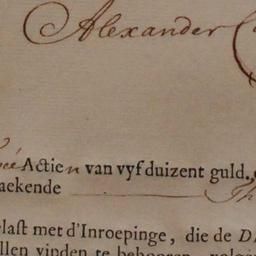 Alexander
Actien van vyf duizent guld.
aekende Th
last met d'Inroepinge, die de D
llen vinden te behooren, volg